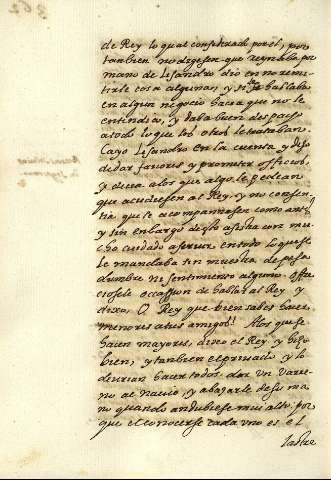 de Rey lo qual considerado por el, por
tambien no dixesen que reynaba por
mano de Lisandro dio en no remi-
tirle cosa alguna, y si se hallaba
en algun negocio hacia que no le
entendia, y daba buen despacho
a todo lo que los otros le trataban.
Cayo Lisandro en la cuenta y dejo
de dar favores y prometer officios,
y decia a los que algo le pedian
que acudiesen al Rey, y no consen-
tia que le acompañasen como antes
y sin embargo de esto asistia con mu-
cho cuidado a servir en todo lo que se
le mandaba sin muestra de pesa-
dumbre ni sentimiento alguno. ofre-
ciosele occasion de hablar al Rey y
dixo, O Rey que bien sabes hacer
menores a tus amigos! A los que se
hacen mayores, dixo el Rey y hizo
bien, y tambien el privado y lo
devrian hacer todos dar un barre-
no al navio, y abajarle de su ma
no quando andubiese mui alto. por
que el conocerse cada uno es el